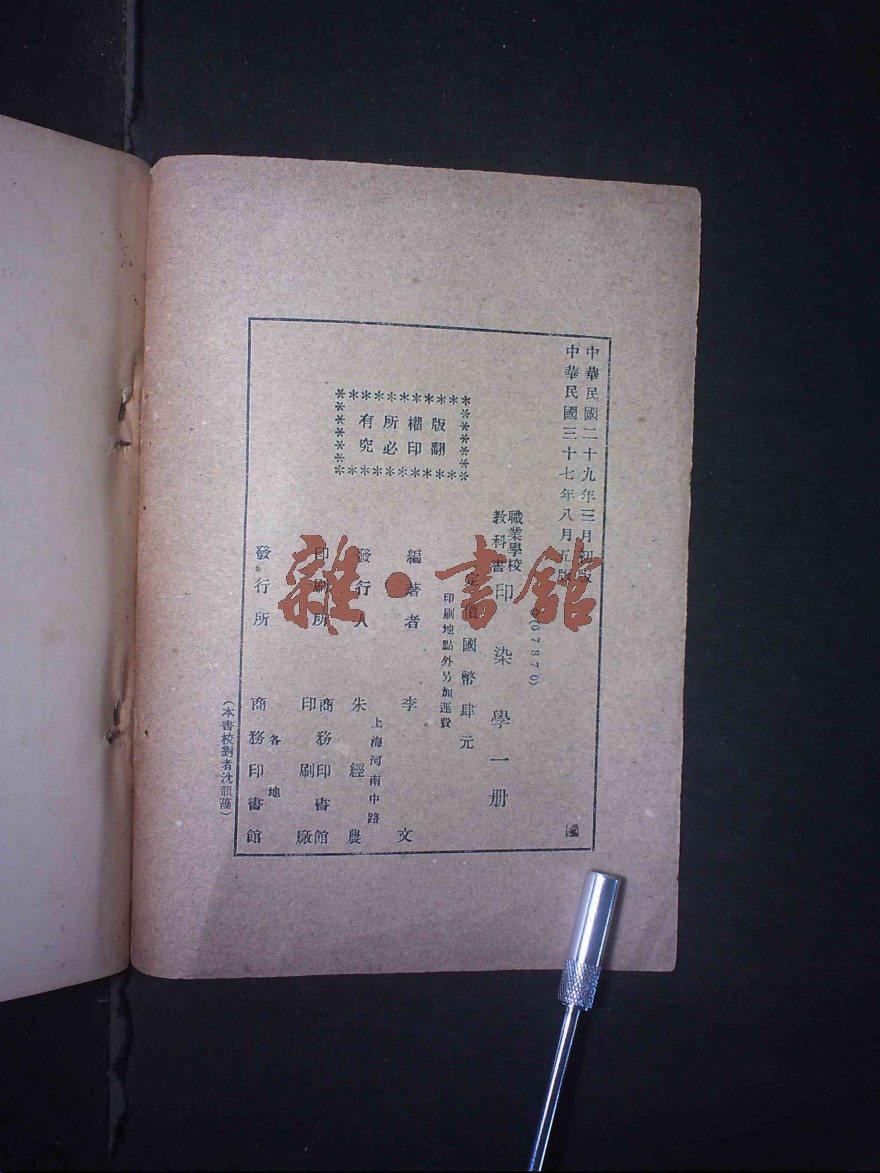 中華民國二十九年三月初版
中華民國三十七年八月五版
(67870)
職業學校
教科書
印染學一册
定價國幣肆元
印刷地點外另加運費
版權所有
翻印必究
編著者 李文
發行人 朱經農
上海河南中路
印刷所 商務印書館
印刷廠
發行所 商務印書館
各地
(本書校對者沈韻藻)
雜·書館